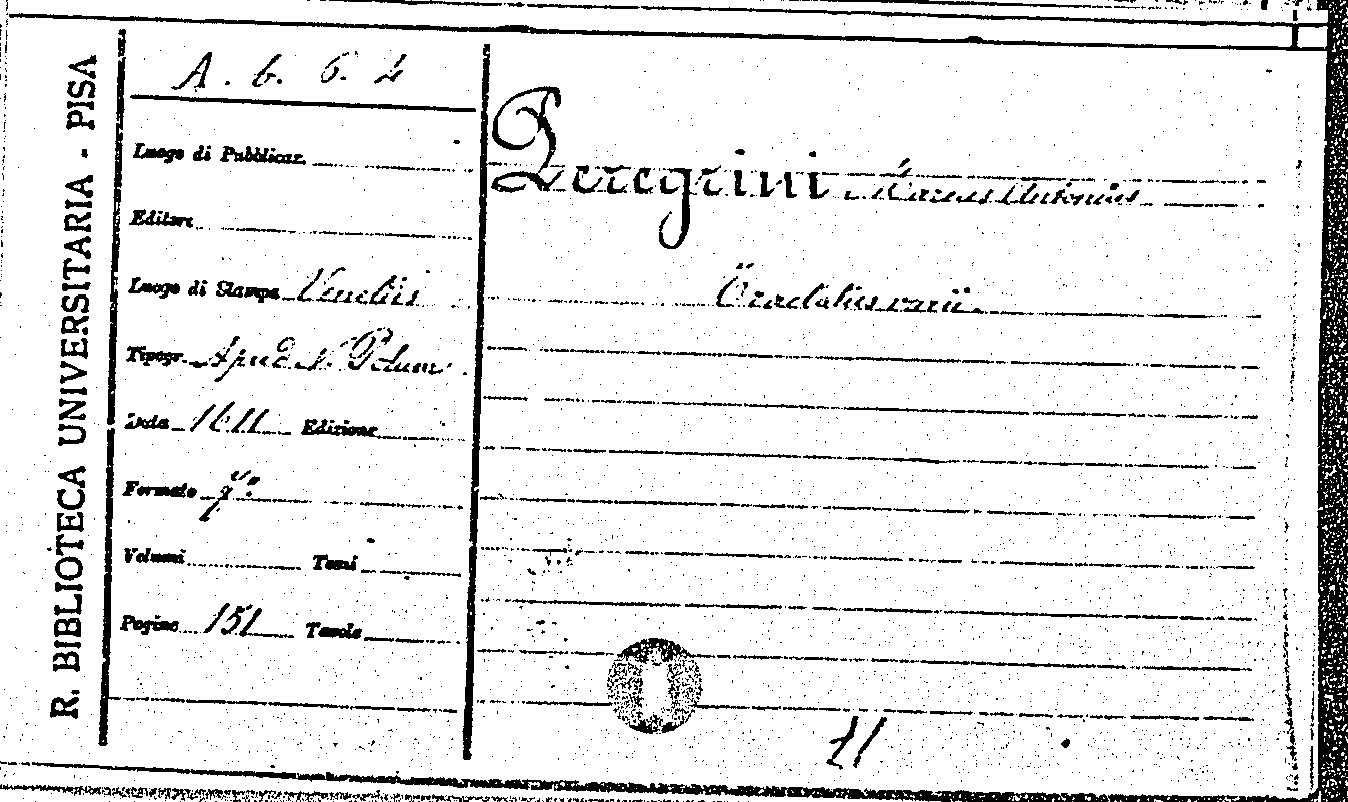 R. BIBLIOTECA UNIVERSITARIA - PISA
A. b. 6. 4
Luogo di Pubblicaz.
Editore
Luogo di Stampa Venetiis
Tipogr. Apud N. Polum
Data 1611 Edizione
Formato 4°.
Volumi Tomi
Pagine 151 Tavole
Peregrini Marcus Antonius
Tractatus varii.